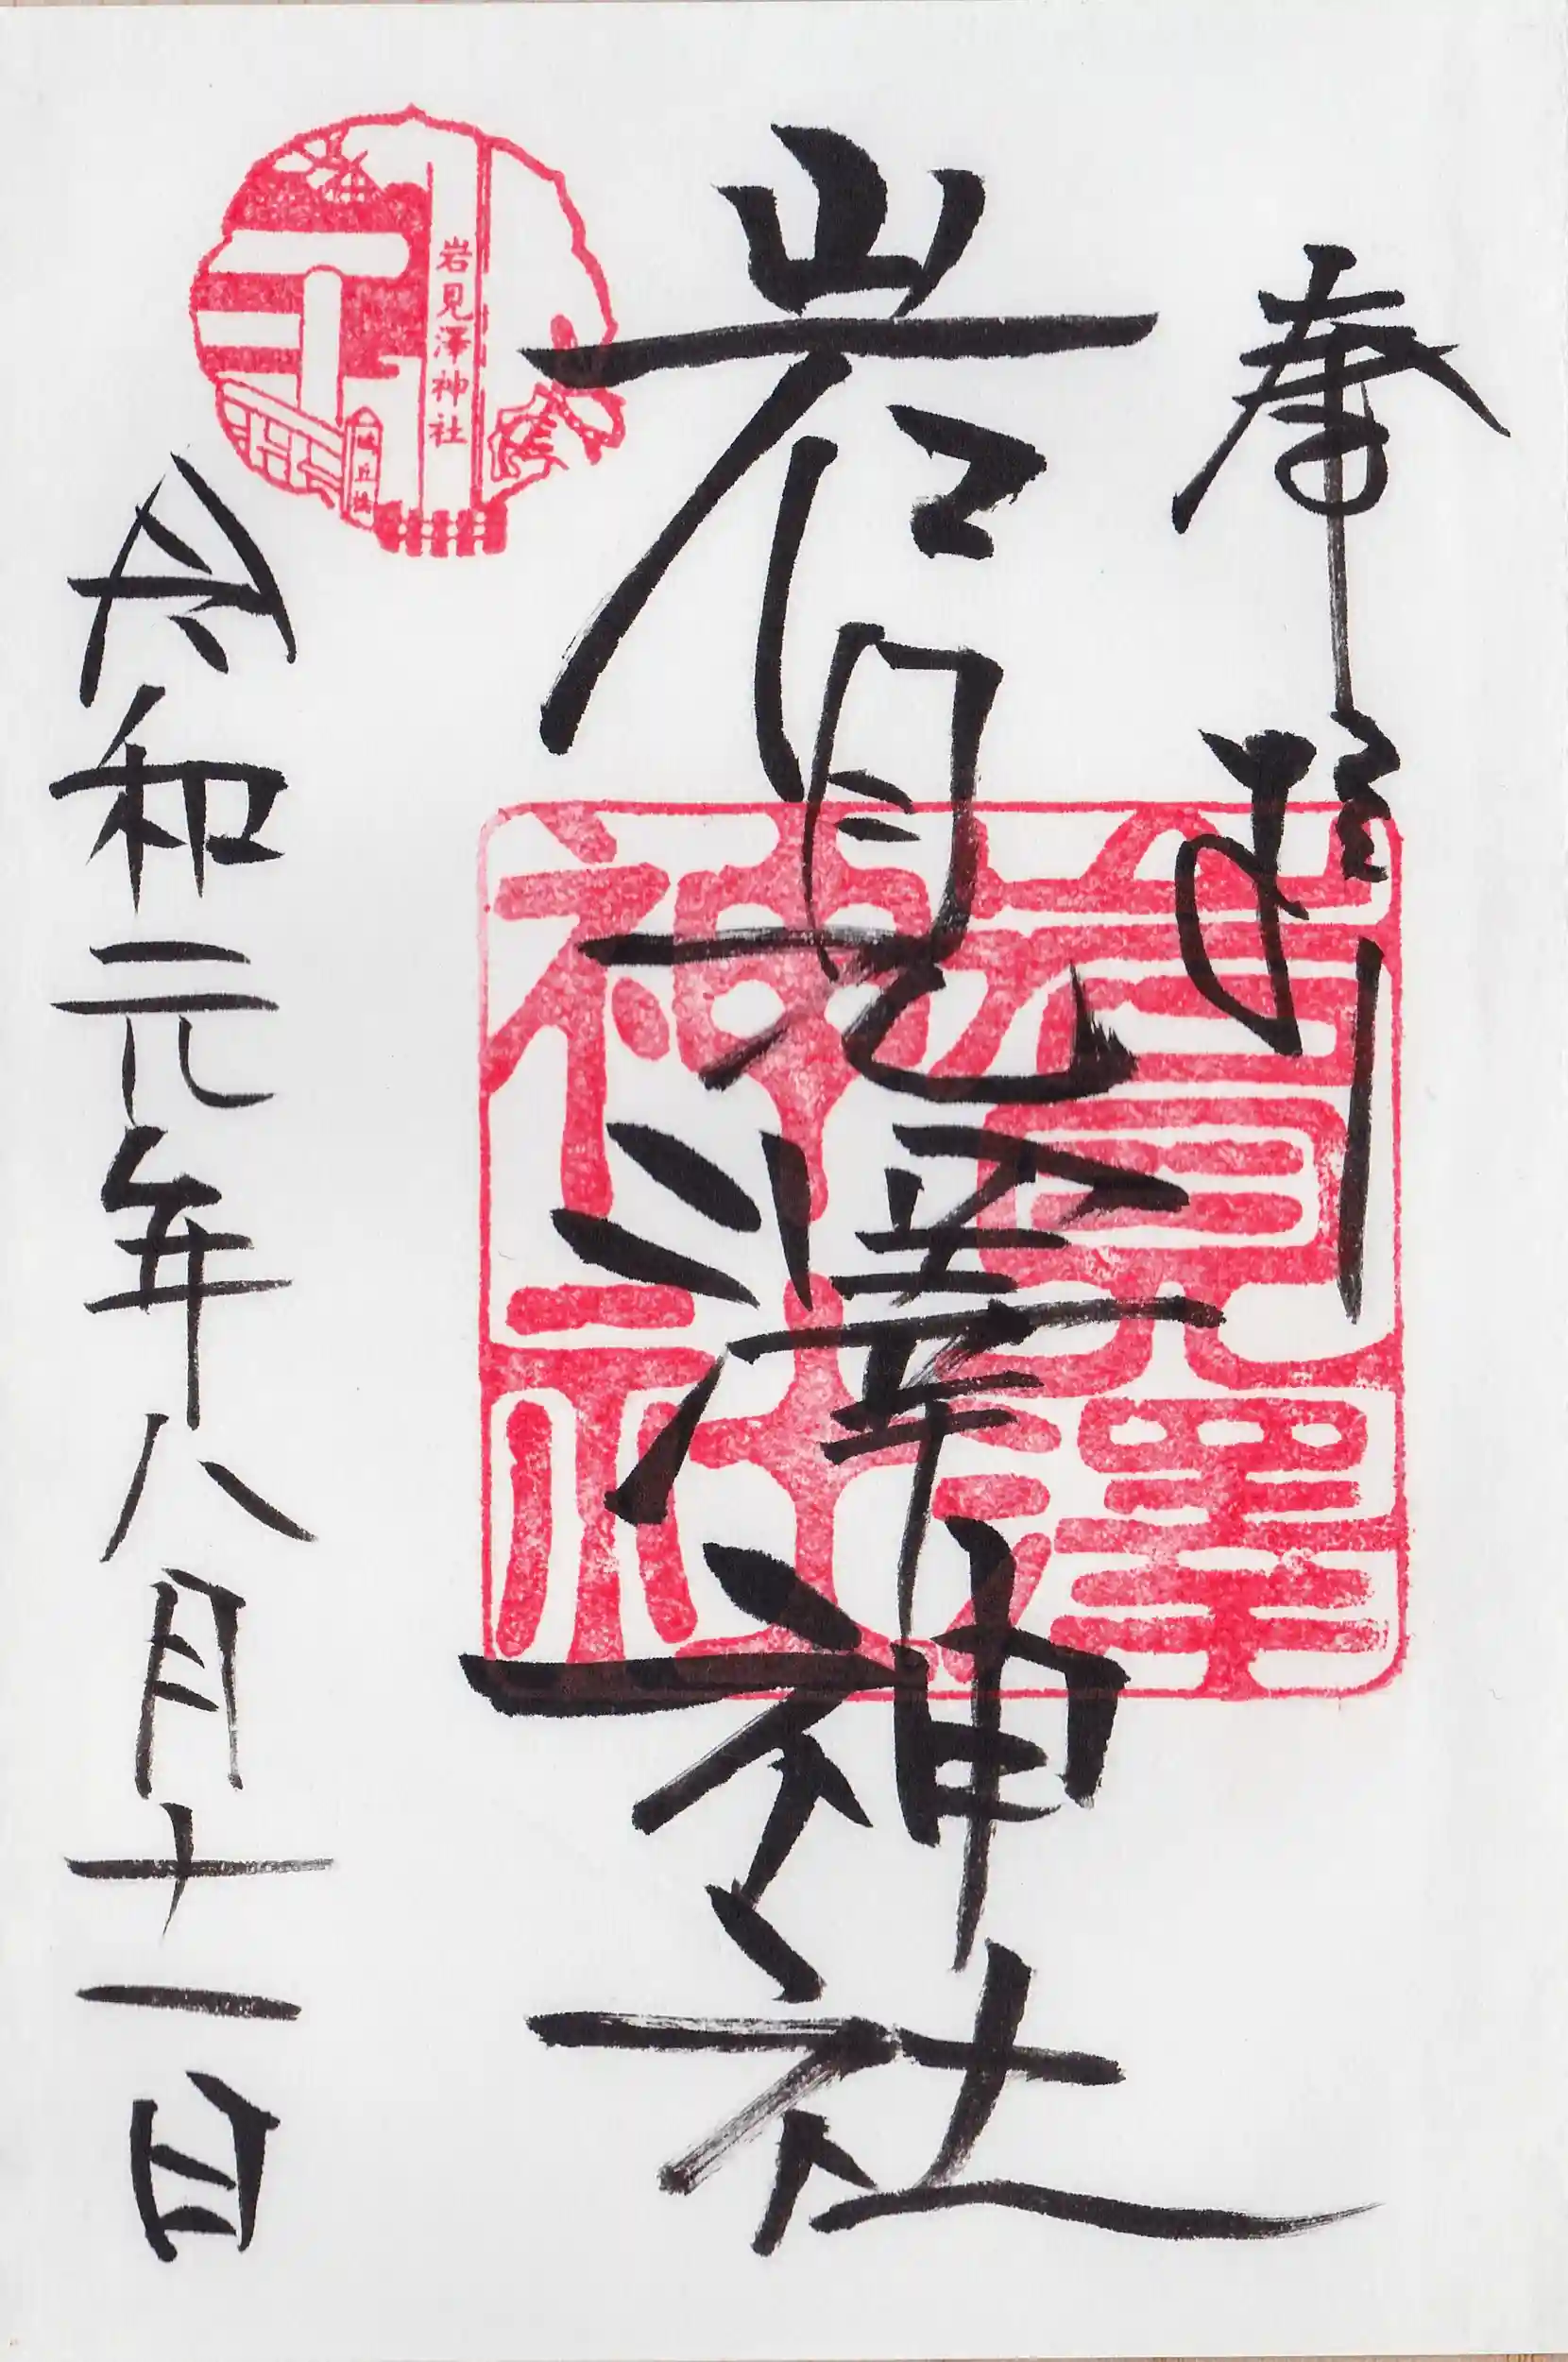 奉拝
岩見澤神社
岩見澤神社
岩見澤神社
令和元年八月十一日